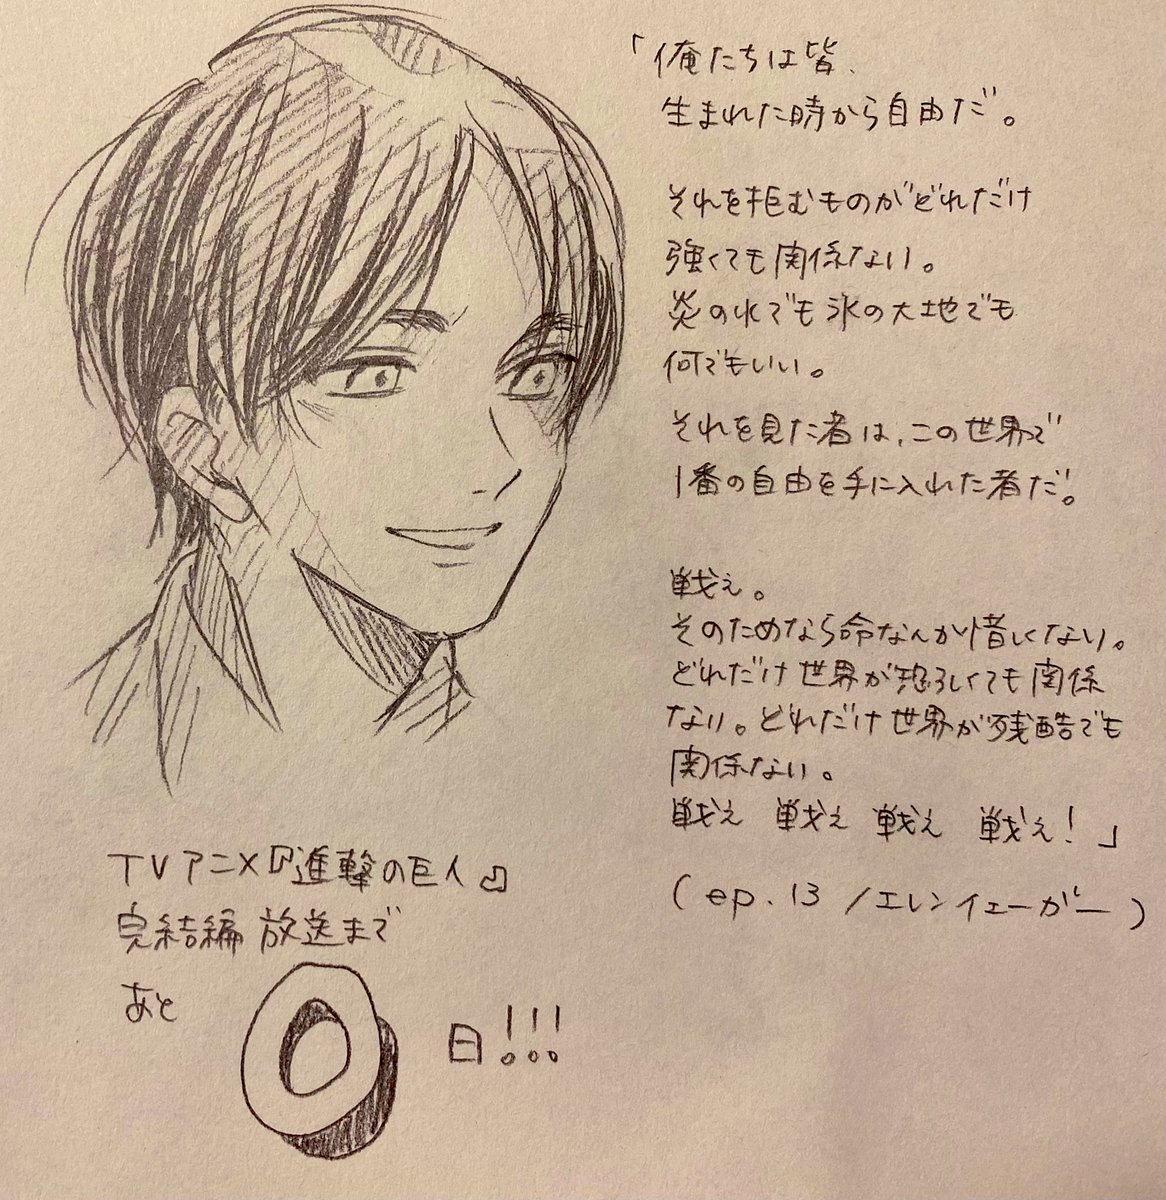 「俺たちは皆、
生まれた時から自由だ。
それを拒むものがどれだけ
強くても関係ない。
炎の水でも氷の大地でも
何でもいい。
それを見た者は、この世界で
1番の自由を手に入れた者だ。
戦え。
そのためなら命なんか惜しくない。
どれだけ世界が恐ろしくても関係
ない。どれだけ世界が残酷でも
関係ない。
戦え 戦え 戦え 戦え!」
(ep.13/エレンイェーガー)
TVアニメ『進撃の巨人』
完結編 放送まで
あと
0
日!!!